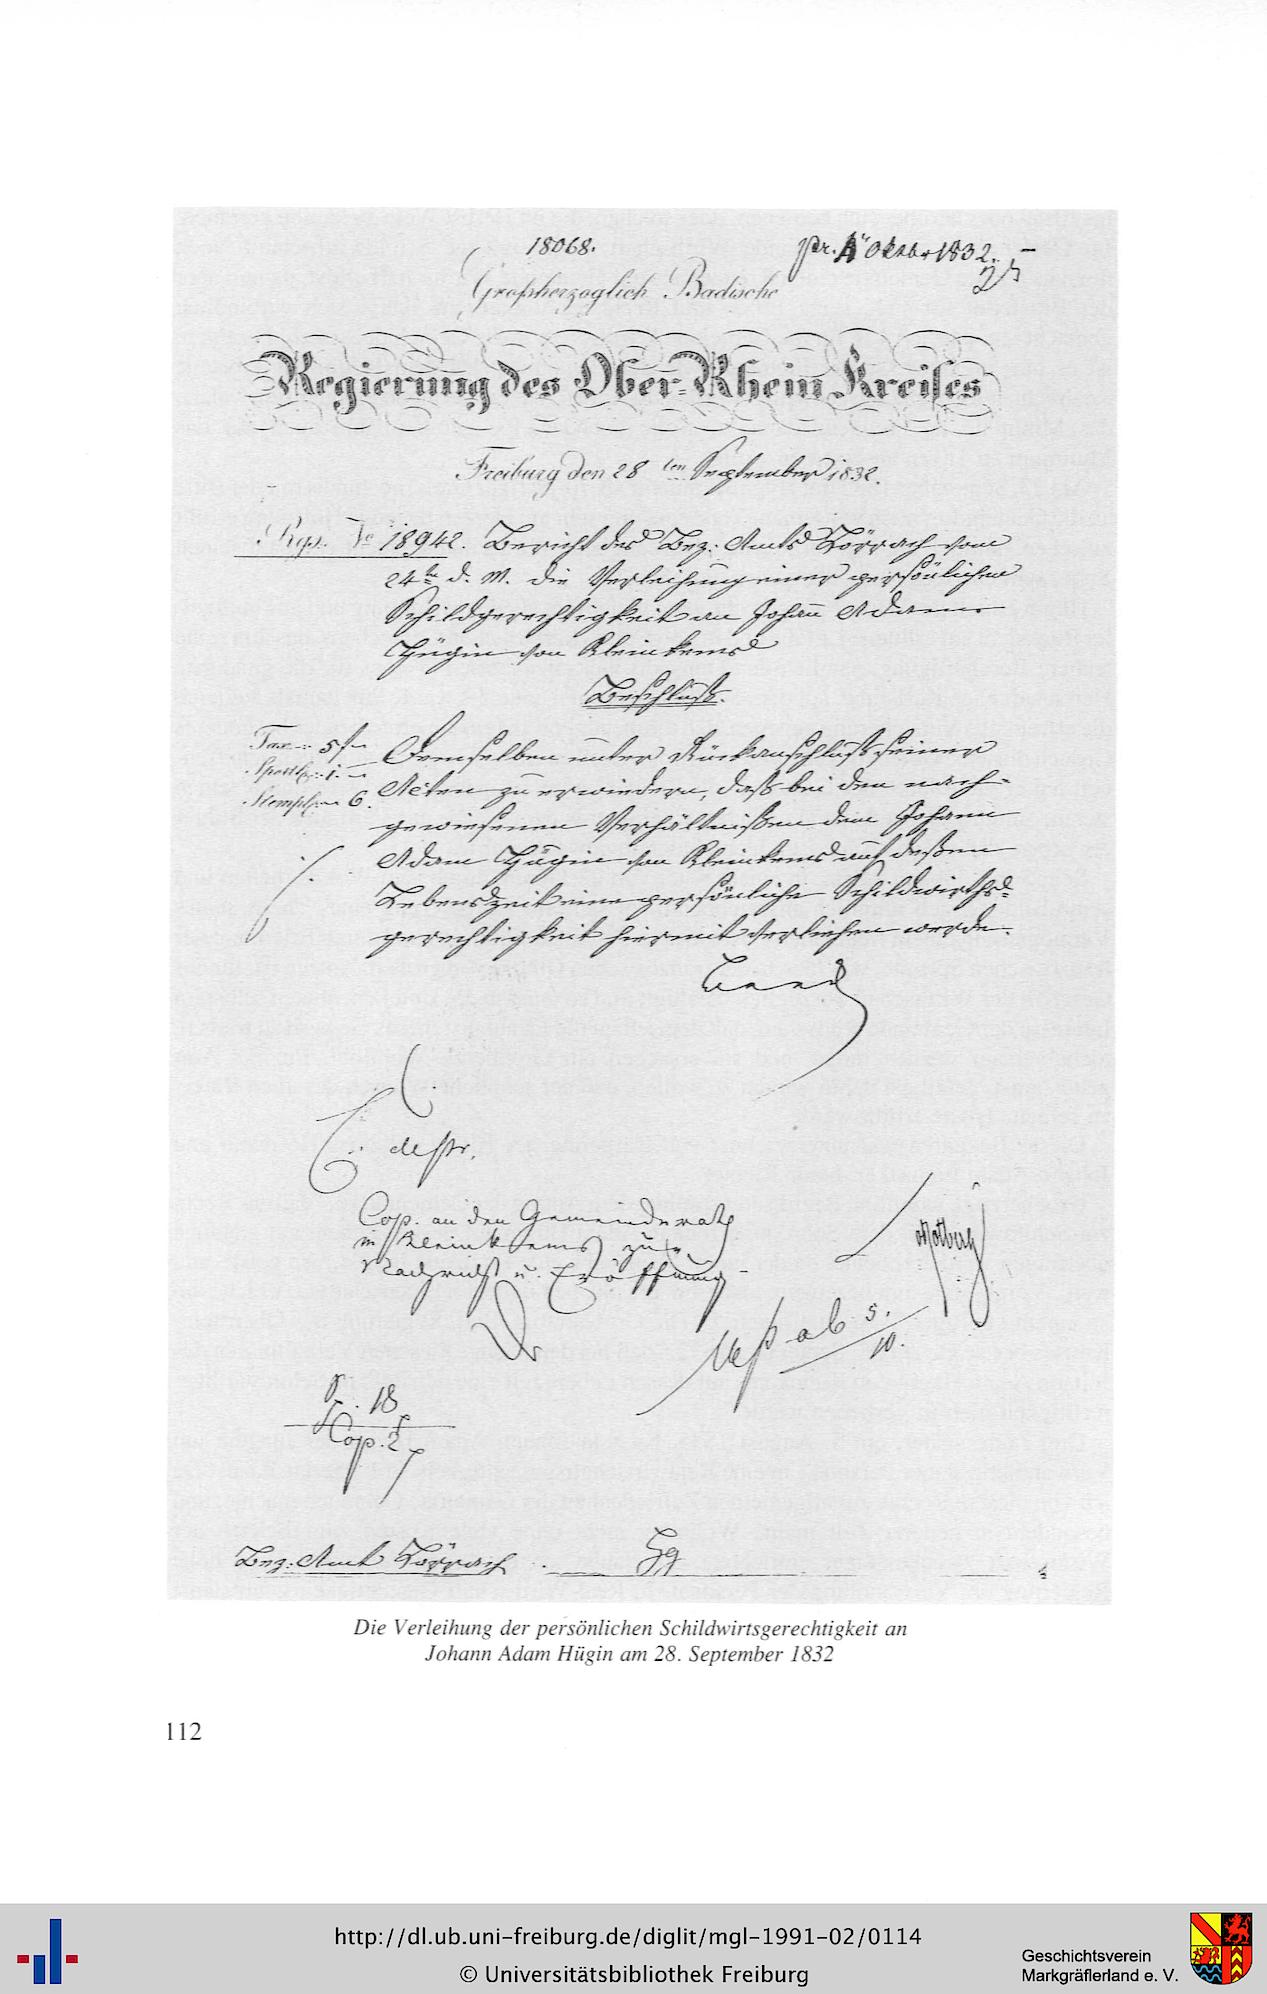 18068.
pr. 4" Oktbr 1832.
Großherzoglich Badische
Regierung des Ober-Rhein Kreises
Freiburg den 28 ten September 1832.
Rgs. No 18942. Bericht des Bez: Amts Lörrach vom
24ten d. M. die Verleihung einer persönlichen
Schildgerechtigkeit an Johann Adam
Hügin von Kleinkems
Beschluß.
Tax 5 f
Sportl. 1.
Stempl. 6.
Demselben unter Rückanschluß seiner
Acten zu erwiedern, daß bei den nach-
gewiesenen Verhältnißen dem Johann
Adam Hügin von Kleinkems auf deßen
Lebenszeit eine persönliche Schildwirths-
gerechtigkeit hiermit verliehen werde.
Cop. an den Gemeinderath
in Kleinkems zur
Nachricht u. Eröffnung
ab 5.
10.
18
Cop. 2
Bez: Amt Lörrach
Die Verleihung der persönlichen Schildwirtsgerechtigkeit an
Johann Adam Hügin am 28. September 1832
112
http://dl.ub.uni-freiburg.de/diglit/mgl-1991-02/0114
© Universitätsbibliothek Freiburg
Geschichtsverein
Markgräflerland e. V.